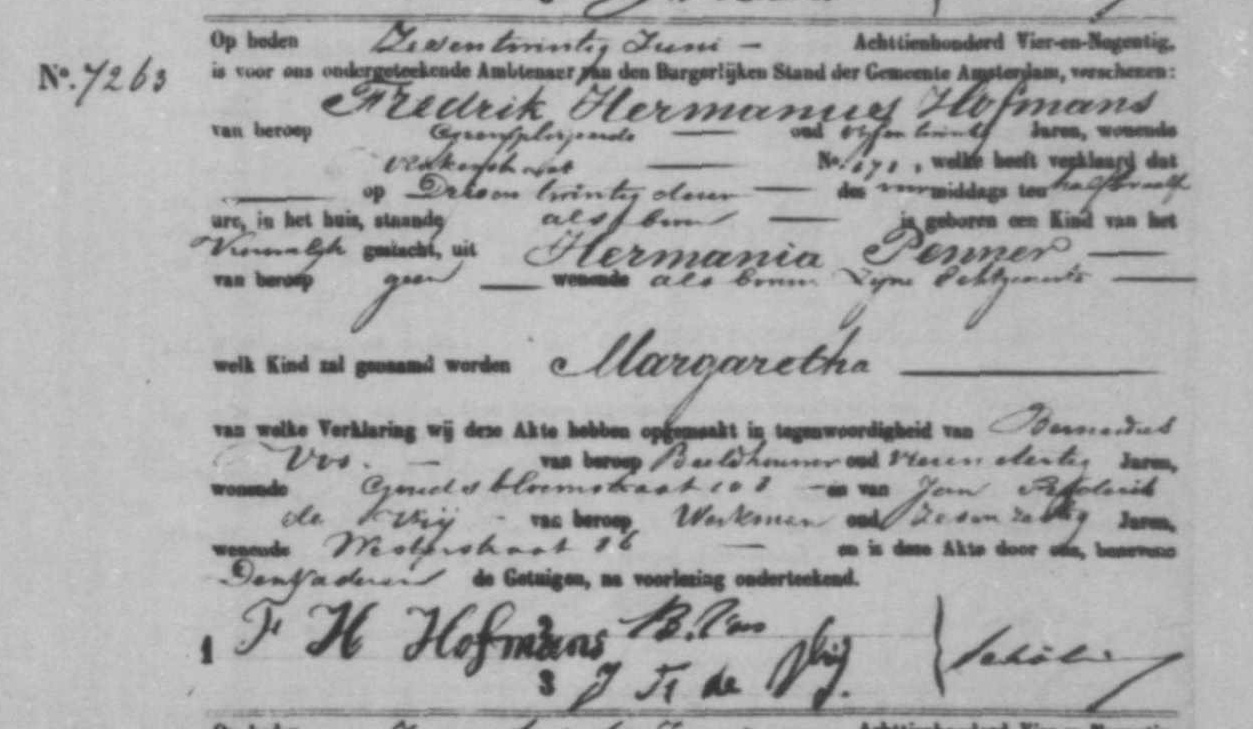 Op heden Zesentwintig Juni — Achttienhonderd Vier-en-Negentig,
No. 7263 is voor ons ondergeteekende Ambtenaar van den Burgerlijken Stand der Gemeente Amsterdam, verschenen:
Fredrik Hermanus Hofmans
van beroep — oud Jaren, wonende
— No. 171, welke heeft verklaard dat
— op Drieen twintig dezer — des voormiddags ten half twaalf
ure, in het huis, staande als boven — is geboren een Kind van het
Vrouwelijk geslacht, uit Hermania Penner —
van beroep geen — wonende als boven Zijne Echtgenoote —
welk Kind zal genaamd worden Margaretha —
van welke Verklaring wij deze Akte hebben opgemaakt in tegenwoordigheid van Bernardus
Vos. — van beroep Beeldhouwer oud Vierendertig Jaren,
wonende Goudsbloemstraat 108 — en van Jan Frederik
de Vrij - van beroep Werkman oud Zesenzestig Jaren,
wonende Westerstraat 86 — en is deze Akte door ons, benevens
Den Vader en de Getuigen, na voorlezing onderteekend.
1 F H Hofmans 2 B. Vos
3 J Fr de Vrij.
Op heden Achttienhonderd Vier-en-Negentig,